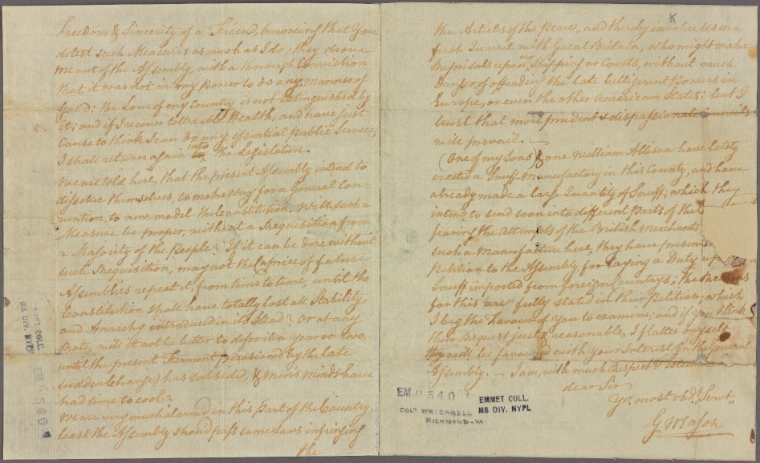 Freedom & Sincerity of a Friend, knowing that You
detest such Measures as much as I do; they drove
me out of the Assembly, with a thorough Conviction
that it was not in my Power to do any Manner of
Good: The Love of my Country is not extinguished by
it; and if I recover tollerable Health, and have just
Cause to think I can do any essential public Service,
I shall return again into the Legislature.
We are told here, that the present Assembly intend to
dissolve themselves, to make way for a General Con-
vention, to new-model the Constitution. Will such a
Measure be proper, without a Requisition from
a Majority of the People? If it can be done without
such Requisition, may not the Caprice of future
Assemblies repeat it, from time to time, until the
Constitution shall have totally lost all Stability,
and Anarchy introduced in its Stead? Or at any
Rate, will it not be better to defer it a year or two,
until the present Ferment (occasioned by the late
sudden Change) has subsided, & men's minds have
had time to cool?
We are very much alarmed, in this Part of the Country,
least the Assembly should pass some Laws infringing
the
K
the Articles of the Peace, and thereby involve us in a
fresh Quarrel with Great Britain, who might make
Reprisals upon our Shipping or Coasts, without much
Danger of offending the late belligerent Powers in
Europe, or even the other American States: but I
trust that more prudent & dispassionate Councils
will prevail.
One of my Sons & one William Allison have lately
erected a Snuff Manufactory in this County, and have
already made a large Quantity of Snuff, which they
intend to send soon into different Parts of the
fearing the Attempts of the British Merchants
such a Manufacture here, they have
Petition to the Assembly for laying a Duty upon
Snuff imported from foreign Countrys; the Reasons
for this are fully stated in their Petition; which
I beg the Favour of you to examine; and if you think
their Request just & reasonable, I flatter myself
they will be favoured with your Interest
Assembly. I am, with much Respect & Esteem
dear Sir
Yr. most obdt. Servt.
G Mason
EM. 9540
EMMET COLL.
MS DIV. NYPL
COL. WM. CABELL
RICHMOND - VA.